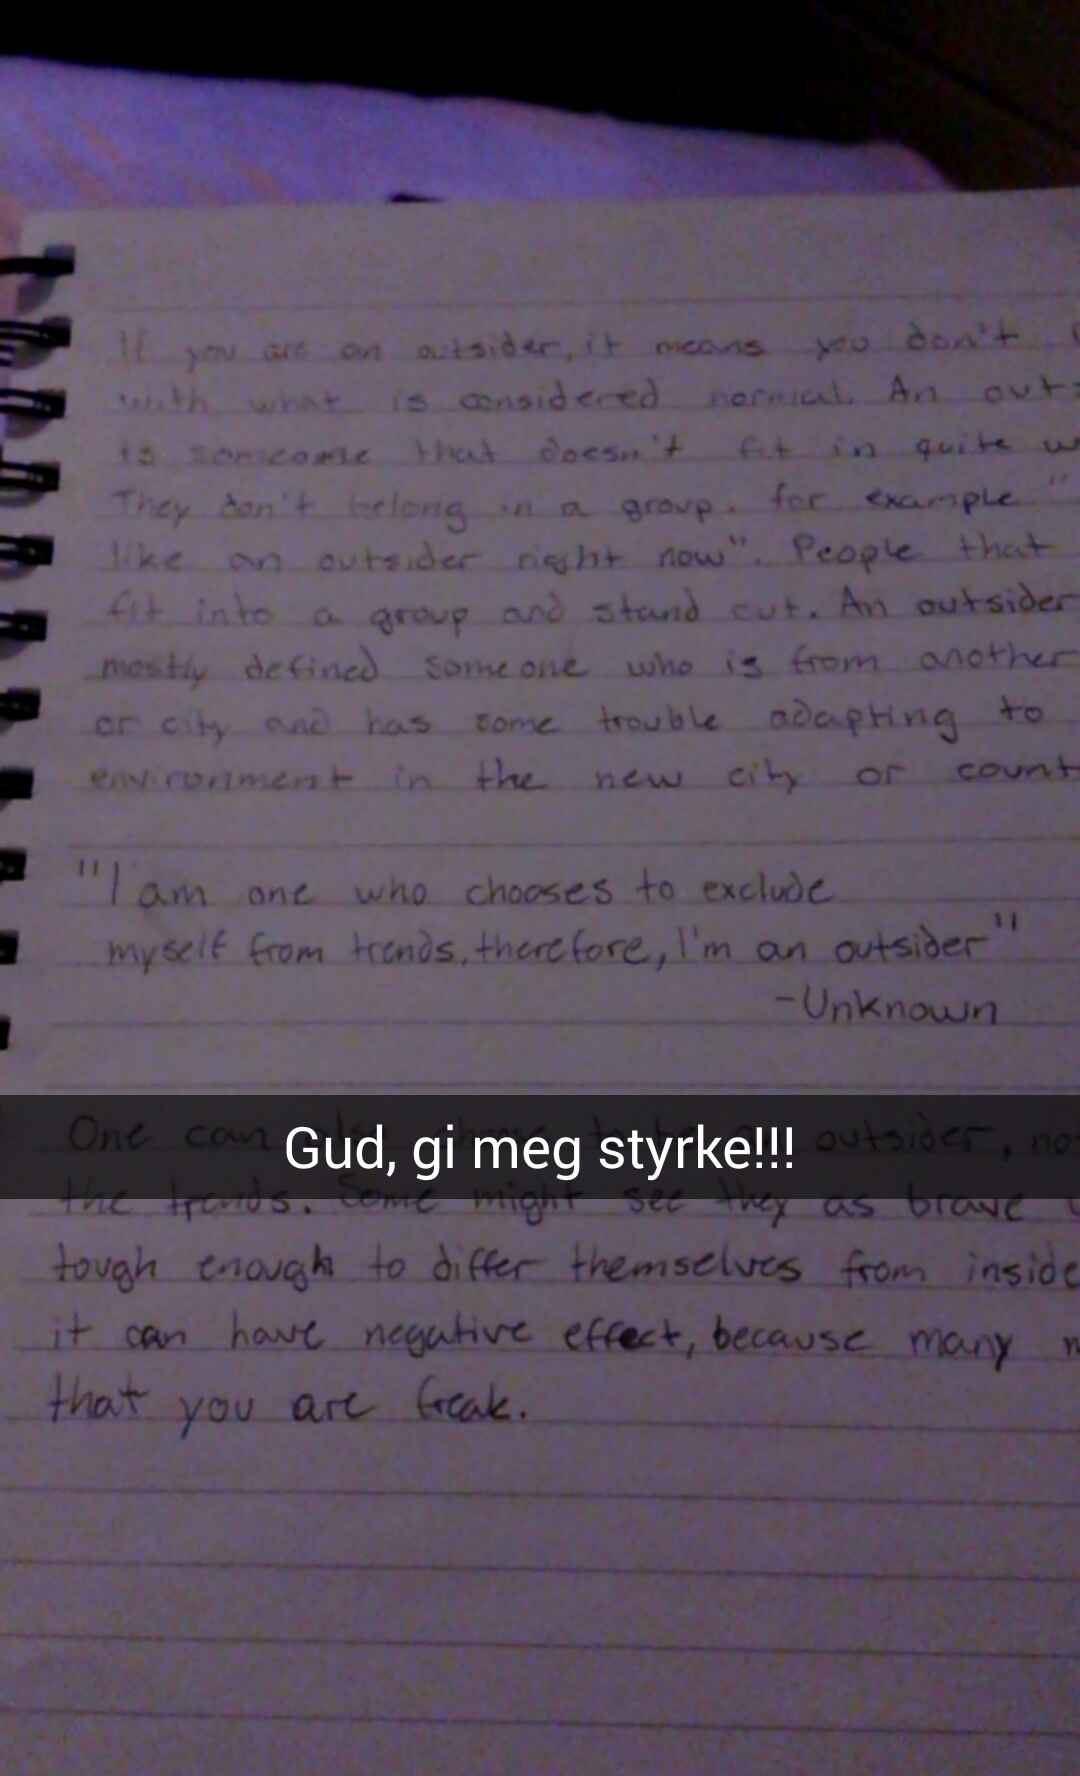 If you are an outsider, it means you don't
with what is considered normal. An
is someome that doesn't fit in quite
They don't belong in a group. for example "
like an outsider right now". People that
fit into a group and stand out. An outsider
mostly defined someone who is from another
or city and has some trouble adapting to
environment in the new city or
"I am one who chooses to exclude
myself from trends, therefore, I'm an outsider"
-Unknown
One can also choose to be an outsider,
Gud, gi meg styrke!!!
the trends. Some might see they as brave
tough enough to differ themselves from
it can have negative effect, because many
that you are freak.